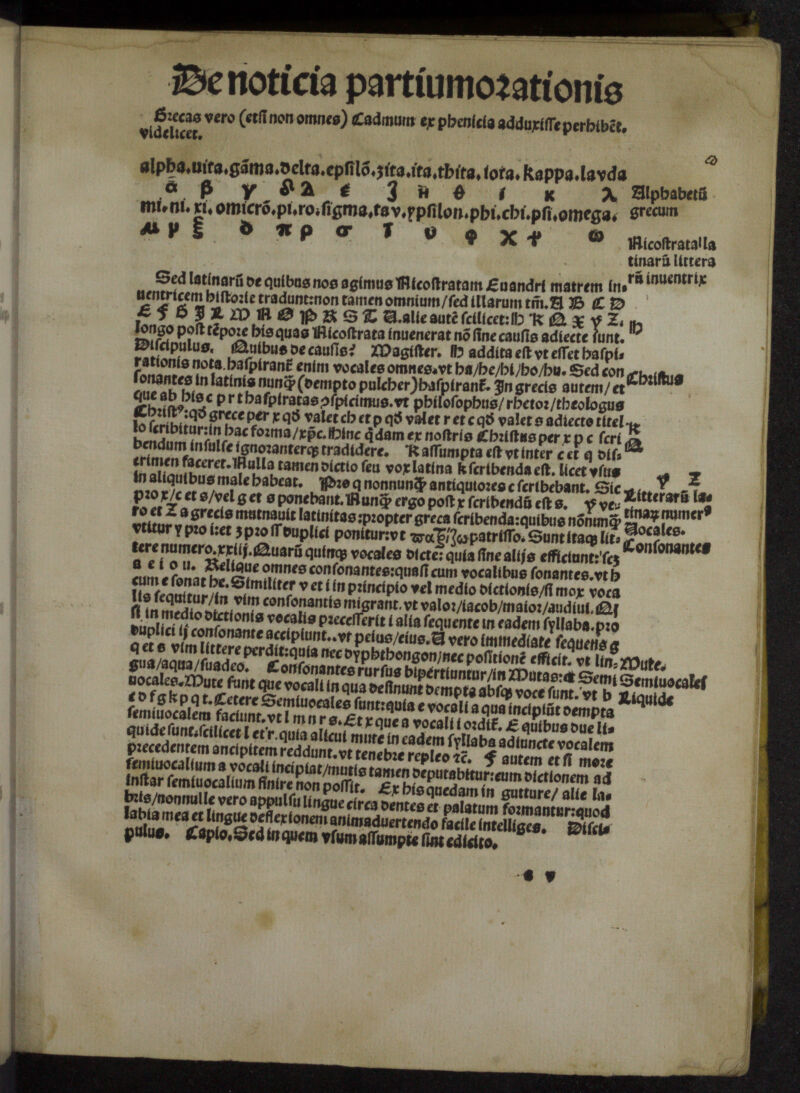 De noticia partium orationis
Grecas vero (etsi non omnes) Cadmum ex phenicia adduxisse perhibēt.
videlicet.
alpha.uita.gāma.delta.epsilō.zita.ita.thita.iota.kappa.lavda
α β γ δ ε ζ η θ ι κ λ Alphabetū
mi.ni.xi.omicrō.pi.ro.sigma.tav.ypsilon.phi.chi.psi.omega. grecum
μ ν ξ ο π ρ σ τ υ φ χ ψ ω
Nicostrata lla
tinarū littera
rū inuentrix
Sed latinarū de quibus nos agimus Nicostratam Euandri matrem in,
uentricem historie tradunt:non tamen omnium/sed illarum tm̄. A B C D
E F G I L M N O P R S T U.alie autē scilicet: H K Q X Y Z.
longo post tēpore his quas Nicostrata inuenerat nō sine causis adiecte sunt.
Discipulus. Quibus de causis? Magister. H addita est vt esset haspi, H
rationis nota.haspirant̄ enim vocales omnes.vt ha/he/hi/ho/hu. Sed con
sonantes in latinis nunq̄ (dempto pulcher) haspirant̄. In grecis autem/et Christus
que ab his c p r t haspiratas ꝓspicimus.vt philosophus/rhetor/theologus
Christꝰ:qd̄ grece per x qd̄ valet ch et p qd̄ valet r et c qd̄ valet s adiecto titel
lo scribitur:in hac forma/xp̄c. Hinc q̄dam ex nostris Christus per x p c scri K
bendum insulse ignoranterqꝫ tradidere. K assumpta est vt inter c et q dis, Q
crimen faceret. Nulla tamen dictio seu vox latina k scribenda est. licet vsus
in aliquibus male habeat. Pro q nonnunq̄ antiquiores c scribebant. Sic Y Z
pro x/c et s/vel g et s ponebant. Nunq̄ ergo post x scribendū est s. Y ve- Litterarū la,
ro et Z a grecis mutuauit latinitas:propter greca scribenda:quibus nōnunq̄ tinaꝝ numerꝰ
vtitur y pro i:et z pro ss duplici ponitur:vt patrisso. Sunt itaqꝫ lit, Vocales.
tere numero.xxiij. Quarū quinqꝫ vocales dicte: quia sine alijs efficiunt: scꝫ Consonantes
a e i o u. Relique omnes consonantes:quasi cum vocalibus sonantes.vt b
cum e sonat be. Similiter v et i in principio vel medio dictionis/si mox voca
lis sequitur/in vim consonantis migrant.vt valor/iacob/maior/audiui. Qꝫ
si in medio dictionis vocalis precesserit i alia sequente in eadem syllaba.pro
duplici ij consonante accipiunt..vt peius/eius. U vero immediate sequens g
q et s vim littere perdit:quia nec dyphthongon/nec positionē efficit. vt lin, Mute.
gua/aqua/suadeo. Consonantes rursus bipertiuntur/in Mutas:⁊ Semi Semiuocales
uocales. Mute sunt que vocali in qua desinunt dempta absqꝫ voce sunt. vt b Liquide
c d f g k p q t. Cetere Semiuocales sunt:quia e vocali a qua incipiūt dempta
semiuocalem faciunt.vt l m n r s. Et x que a vocali i ordit̄. E quibus due li,
quide sunt.scilicet l et r.quia alicui mute in eadem syllaba adiuncte vocalem
precedentem ancipitem reddunt.vt tenebre repleo ⁊c. F autem etsi more
semiuocalium a vocali incipiat/mutis tamen deputabitur:eum dictionem ad
instar semiuocalium finire non possit. Ex his quedam in gutture/ alie la,
bris/nonnulle vero appulsu lingue circa dentes et palatum formantur:quod
labia mea et lingue deflexionem animaduertendo facile intelliges. Disci
pulus. Capio. Sed in quem vsum assumpte sint edicito.
a v